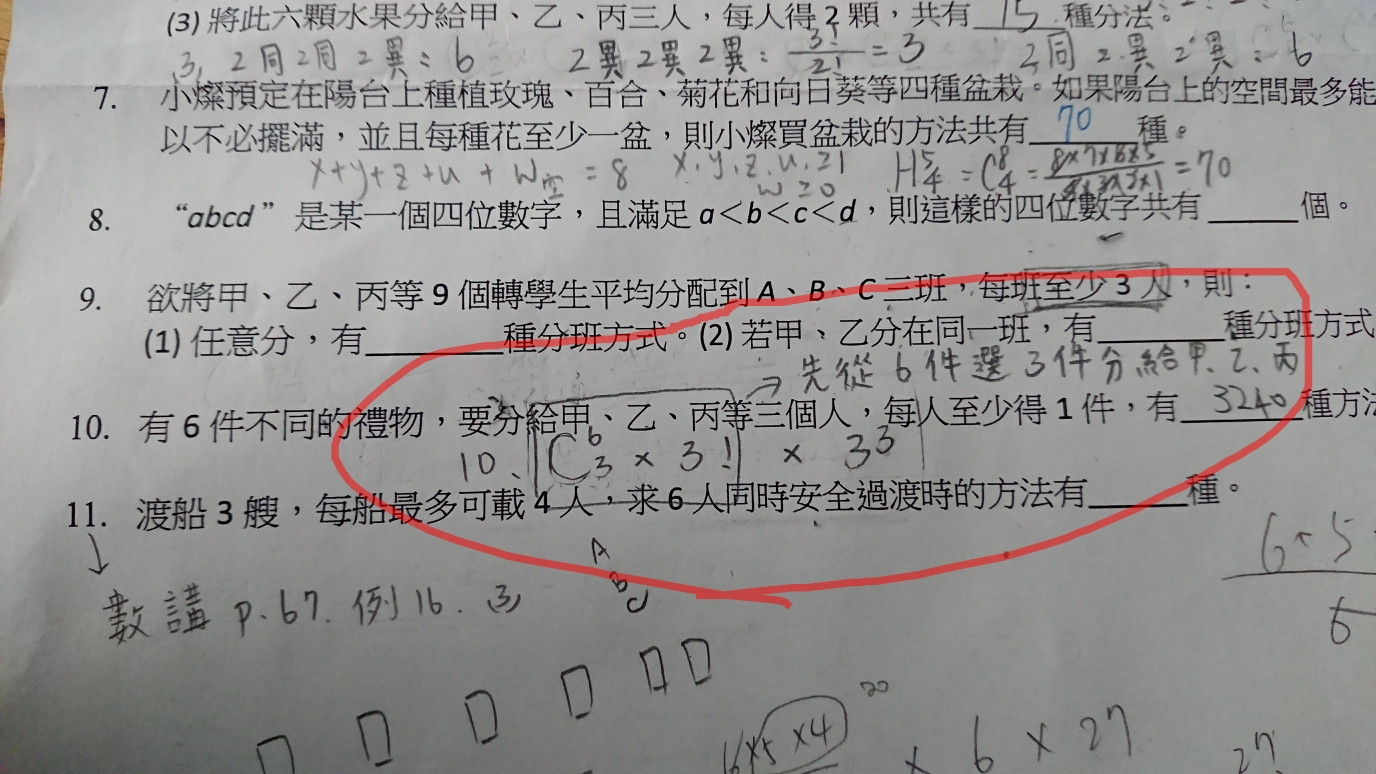 (3) 將此六顆水果分給甲、乙、丙三人，每人得 2 顆，共有 15 種分法。
2同2同2異：6 2異2異2異：3!/2! = 3 2同2異2異：6
7. 小燦預定在陽台上種植玫瑰、百合、菊花和向日葵等四種盆栽。如果陽台上的空間最多能
以不必擺滿，並且每種花至少一盆，則小燦買盆栽的方法共有 70 種。
x+y+z+u+w空=8 x,y,z,u≥1 w≥0 H⁵₄=C⁸₄=8×7×6×5/4×3×2×1=70
8. “abcd” 是某一個四位數字，且滿足 a＜b＜c＜d，則這樣的四位數字共有 ______ 個。
9. 欲將甲、乙、丙等 9 個轉學生平均分配到 A、B、C 三班，每班至少 3 人，則：
(1) 任意分，有________種分班方式。(2) 若甲、乙分在同一班，有________種分班方式
→先從6件選3件分給甲、乙、丙
10. 有 6 件不同的禮物，要分給甲、乙、丙等三個人，每人至少得 1 件，有 3240 種方法
10、C⁶₃ × 3! × 3³
11. 渡船 3 艘，每船最多可載 4 人，求 6 人同時安全過渡時的方法有______種。
A
B
C
數講 p.67. 例16. (3)
6×5
6
20
6×5×4 × 6 × 27
27